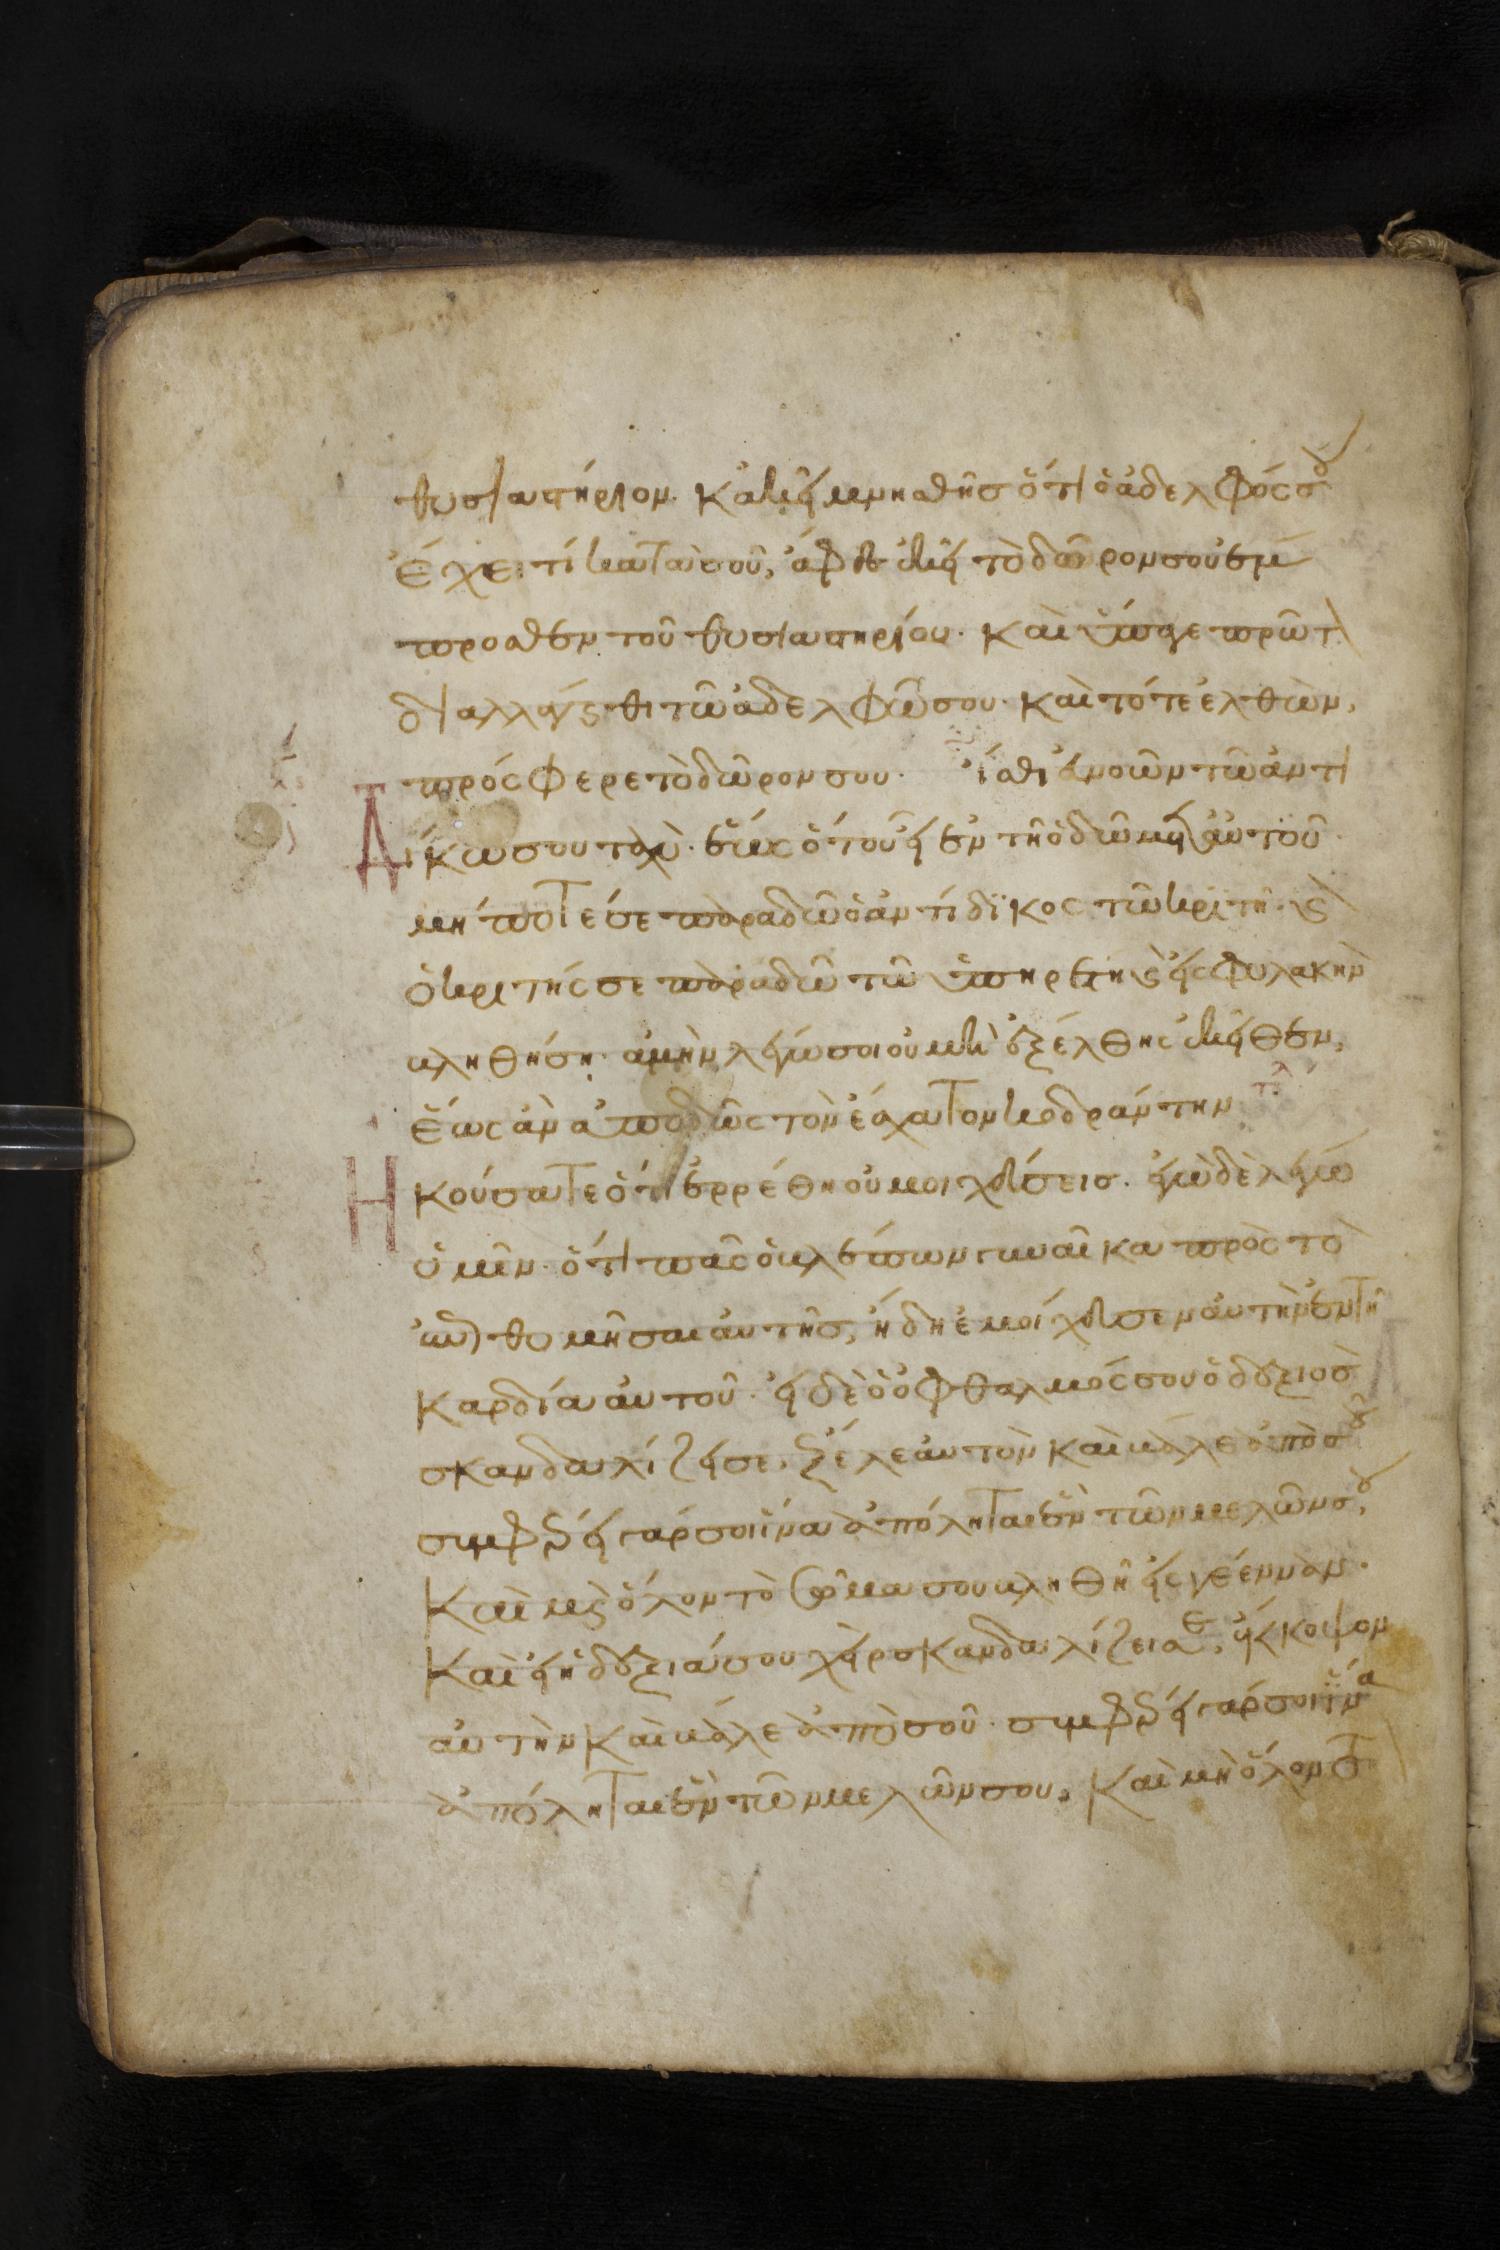 θυσιαστήριον. κἀκεῖ μνησθῆς ὅτι ὁ ἀδελφός σου
ἔχει τί κατὰ σοῦ, ἄφες ἐκεῖ τὸ δῶρον σου ἔμ
προσθεν τοῦ θυσιαστηρίου. καὶ ὕπαγε πρῶτ
διαλλάγηθι τῶ ἀδελφῶ σου. καὶ τότε ἐλθὼν,
πρόσφερε τὸ δῶρον σου. ἴσθι εὐνοῶν τῶ ἀντι
δίκω σου ταχὺ. ἕως ὅτου εἶ ἐν τῆ ὁδῶ μετ αὐτοῦ.
μήποτε σε παραδῶ ὁ ἀντίδϊκος τῶ κριτῆ. καὶ
ὁ κριτής σε παραδῶ τῶ ὑπηρέτη καὶ εἰς φυλακὴν
βληθήση. ἀμὴν λέγω σοι οὐ μὴ ἐξέλθης ἐκεῖθεν,
ἕως ἂν ἀποδῶς τὸν ἔσχατον κοδράντην τλ
Ἠκούσατε ὅτι ἐρρέθη οὐ μοιχεύσεις. ἐγὼ δὲ λέγω
ὑμῖν. ὅτι πᾶς ὁ βλέπων γυναῖκα πρὸς τὸ
ἐπιθυμῆσαι αὐτῆς, ἤδη ἐμοίχευσεν αὐτὴν ἐν τῆ
καρδία αὐτοῦ. εἰ δὲ ὁ ὀφθαλμός σου ὁ δεξιὸς
σκανδαλίζει σε, ἔξελε αὐτὸν καὶ βάλε ἀπὸ σοῦ
συμφέρει γάρ σοι ἵνα ἀπόληται ἓν τῶν μελῶν σου,
καὶ μὴ ὅλον τὸ σῶμα σου βληθῆ εἰς γέενναν.
καὶ εἰ ἡ δεξιά σου χεὶρ σκανδαλίζει σε, ἔκκοψον
αὐτὴν καὶ βάλε ἀπὸ σοῦ. συμφέρει γάρ σοι ἵνα
ἀπόληται ἓν τῶν μελῶν σου, καὶ μὴ ὅλον τὸ